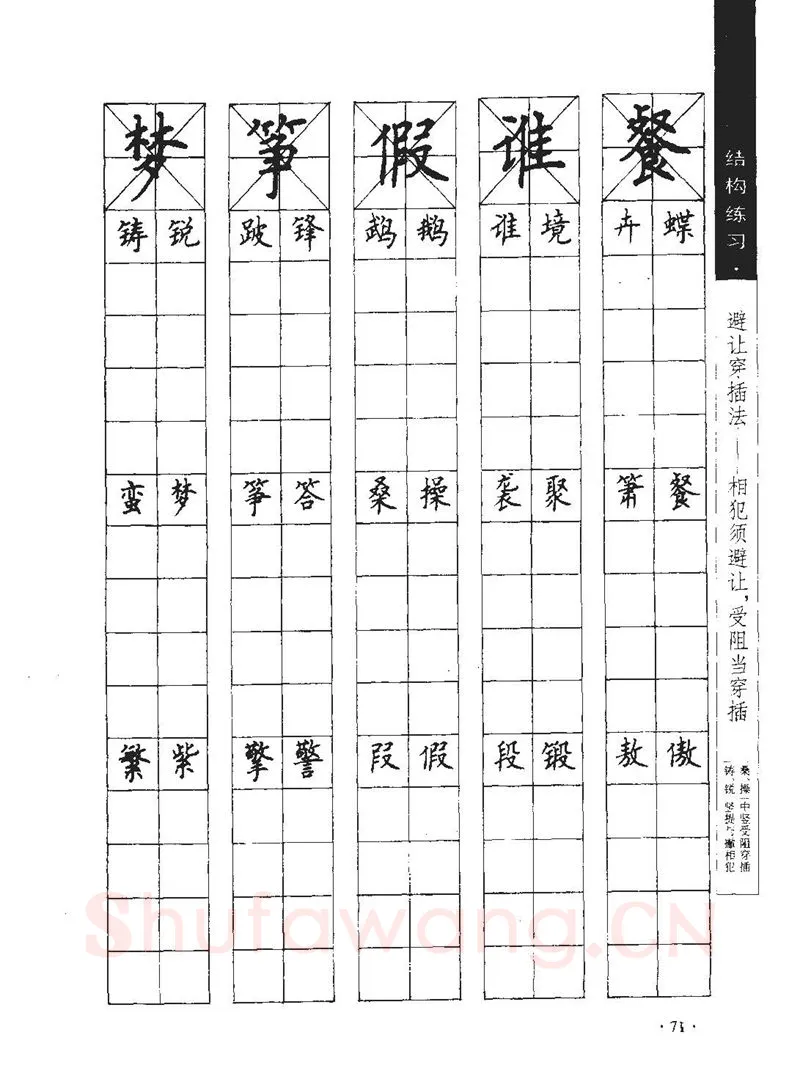 结构练习·
避让穿插法——相犯须避让，受阻当穿插
桑、操中竖受阻穿插
铸、锐竖提与撇相犯
梦 筝 假 谁 餐
铸 锐 跛 锋 鹉 鹅 谁 境 卉 蝶
蛮 梦 筝 答 桑 操 袭 聚 箫 餐
繁 紫 擎 警 叚 假 段 锻 敖 傲
Shufawang.CN